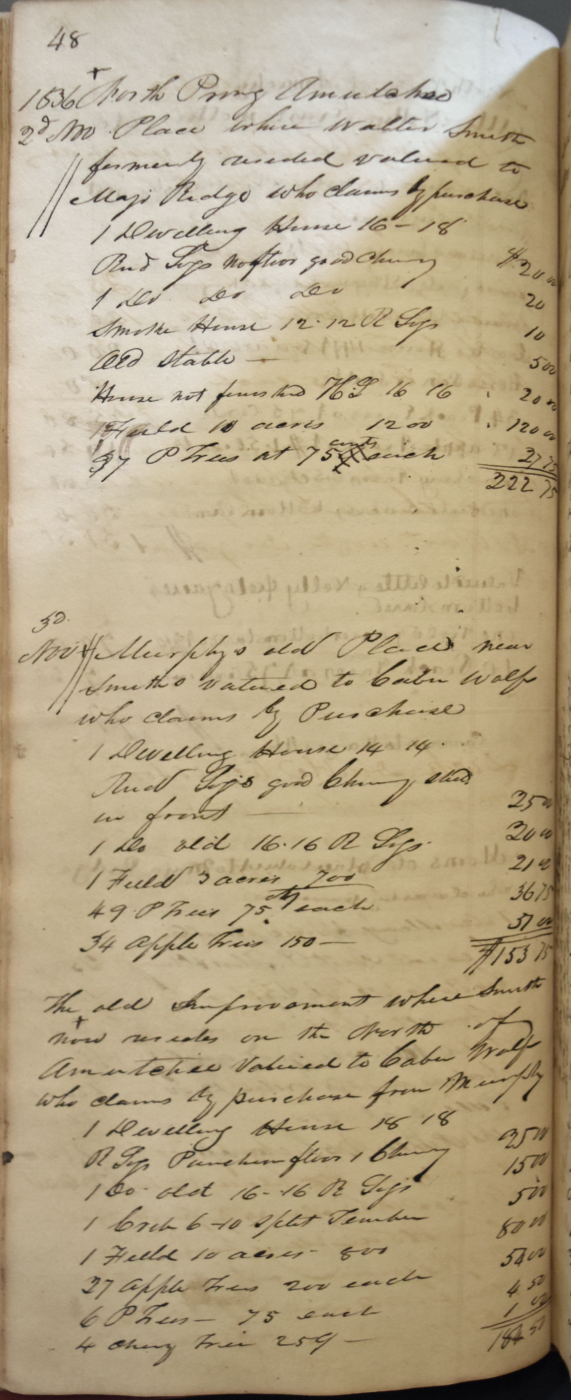 48
1836 North Prong Amutchee
2d Nov Place where Walter Smith
formerly resided valued to
Majr Ridge who claims by purchase
1 Dwelling House 16 - 18
Rnd Logs no floor good Chimy $20 00
1 Do Do Do 20
Smoke House 12 · 12 R Logs 10
Old Stable — 5 00
House not finished H L 16 16 20 00
1 Field 10 acres 12 00 120 00
37 P Trees at 75 cents each 27 75
222 75
3d
Nov Murphys old Place near
Smiths valued to Cabin Wolfe
who claims by Purchase
1 Dwelling House 14 14
Rnd Logs good Chimy shed
in front — 25 00
1 Do old 16 · 16 R Logs 20 00
1 Field 3 acres 700 21 00
49 P Trees 75 cts each 36 75
34 Apple Trees 150 — 51 00
$153 75
The old Improvement where Smith
now resides on the North of
Amutchee Valued to Cabin Wolfe
who claims by purchase from Murphy
1 Dwelling House 18 18
R Logs Puncheon floor 1 Chimy 25 00
1 Do old 16 - 16 R Logs 15 00
1 Crib 6 - 10 split Timber 5 00
1 Field 10 acres - 800 80 00
27 Apple Trees 200 each 54 00
6 P Trees — 75 each 4 50
4 Chery Trees 25 — 1 00
184 50